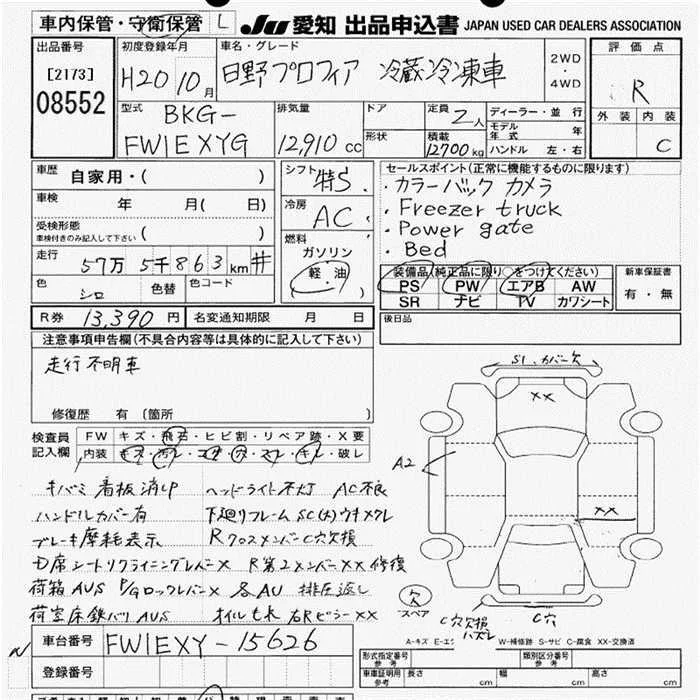 車内保管・守衛保管 L JU 愛知 出品申込書 JAPAN USED CAR DEALERS ASSOCIATION
出品番号 初度登録年月 車名・グレード 2WD・4WD 評価点
[2173] H20 10月 日野プロフィア 冷蔵冷凍車 R
08552
型式 排気量 ドア 定員 2人 ディーラー・並行 外装 内装
BKG- モデル年式 年
FW1EXYG 12,910 cc 形状 積載 12700kg ハンドル 左・右 C
車歴 自家用・( ) シフト 特S. セールスポイント(正常に機能するものに限ります)
車検 年 月( 日) 冷房 AC ・カラーバック カメラ
受検形態 ・Freezer truck
車検付きのみ記入して下さい ( ) 燃料 ・Power gate
走行 57万 5千863km # ガソリン ・Bed
色 シロ 色替 色コード 軽・油 装備品(純正品に限り○をつけてください) 新車保証書
PS PW エアB AW 有・無
SR ナビ TV カワシート
R券 13,390円 名変通知期限 月 日 後日品
注意事項申告欄(不具合内容等は具体的に記入して下さい)
走行不明車
修復歴 有 (箇所 )
S1.カバー欠
XX
A2
XX
検査員記入欄 FW キズ・飛石・ヒビ割・リペア跡・X要
内装 キズ・汚レ・コゲ・穴・スレ・キレ・破レ
キバミ 看板消し ヘッドライト不灯 AC不良
ハンドルカバー有 下廻りフレームSC(大)ウキメクレ
ブレーキ摩耗表示 Rクロスメンバーc穴欠損
D席シートリクライニングレバーX R第2メンバーXX修復
荷箱AUS P/GロックレバーX 各AU 排圧返し
荷室床鉄バリAUS オイルもれ 右RピラーXX
欠
スペア
C穴欠損
ハズレ
C穴
車台番号 FW1EXY-15626
登録番号
A-キズ E-エ W-補修跡 S-サビ C-腐食 XX-交換済
形式指定番号 参考 類別区分番号 参考
車庫証明用 参考 長さ cm 幅 cm 高さ cm